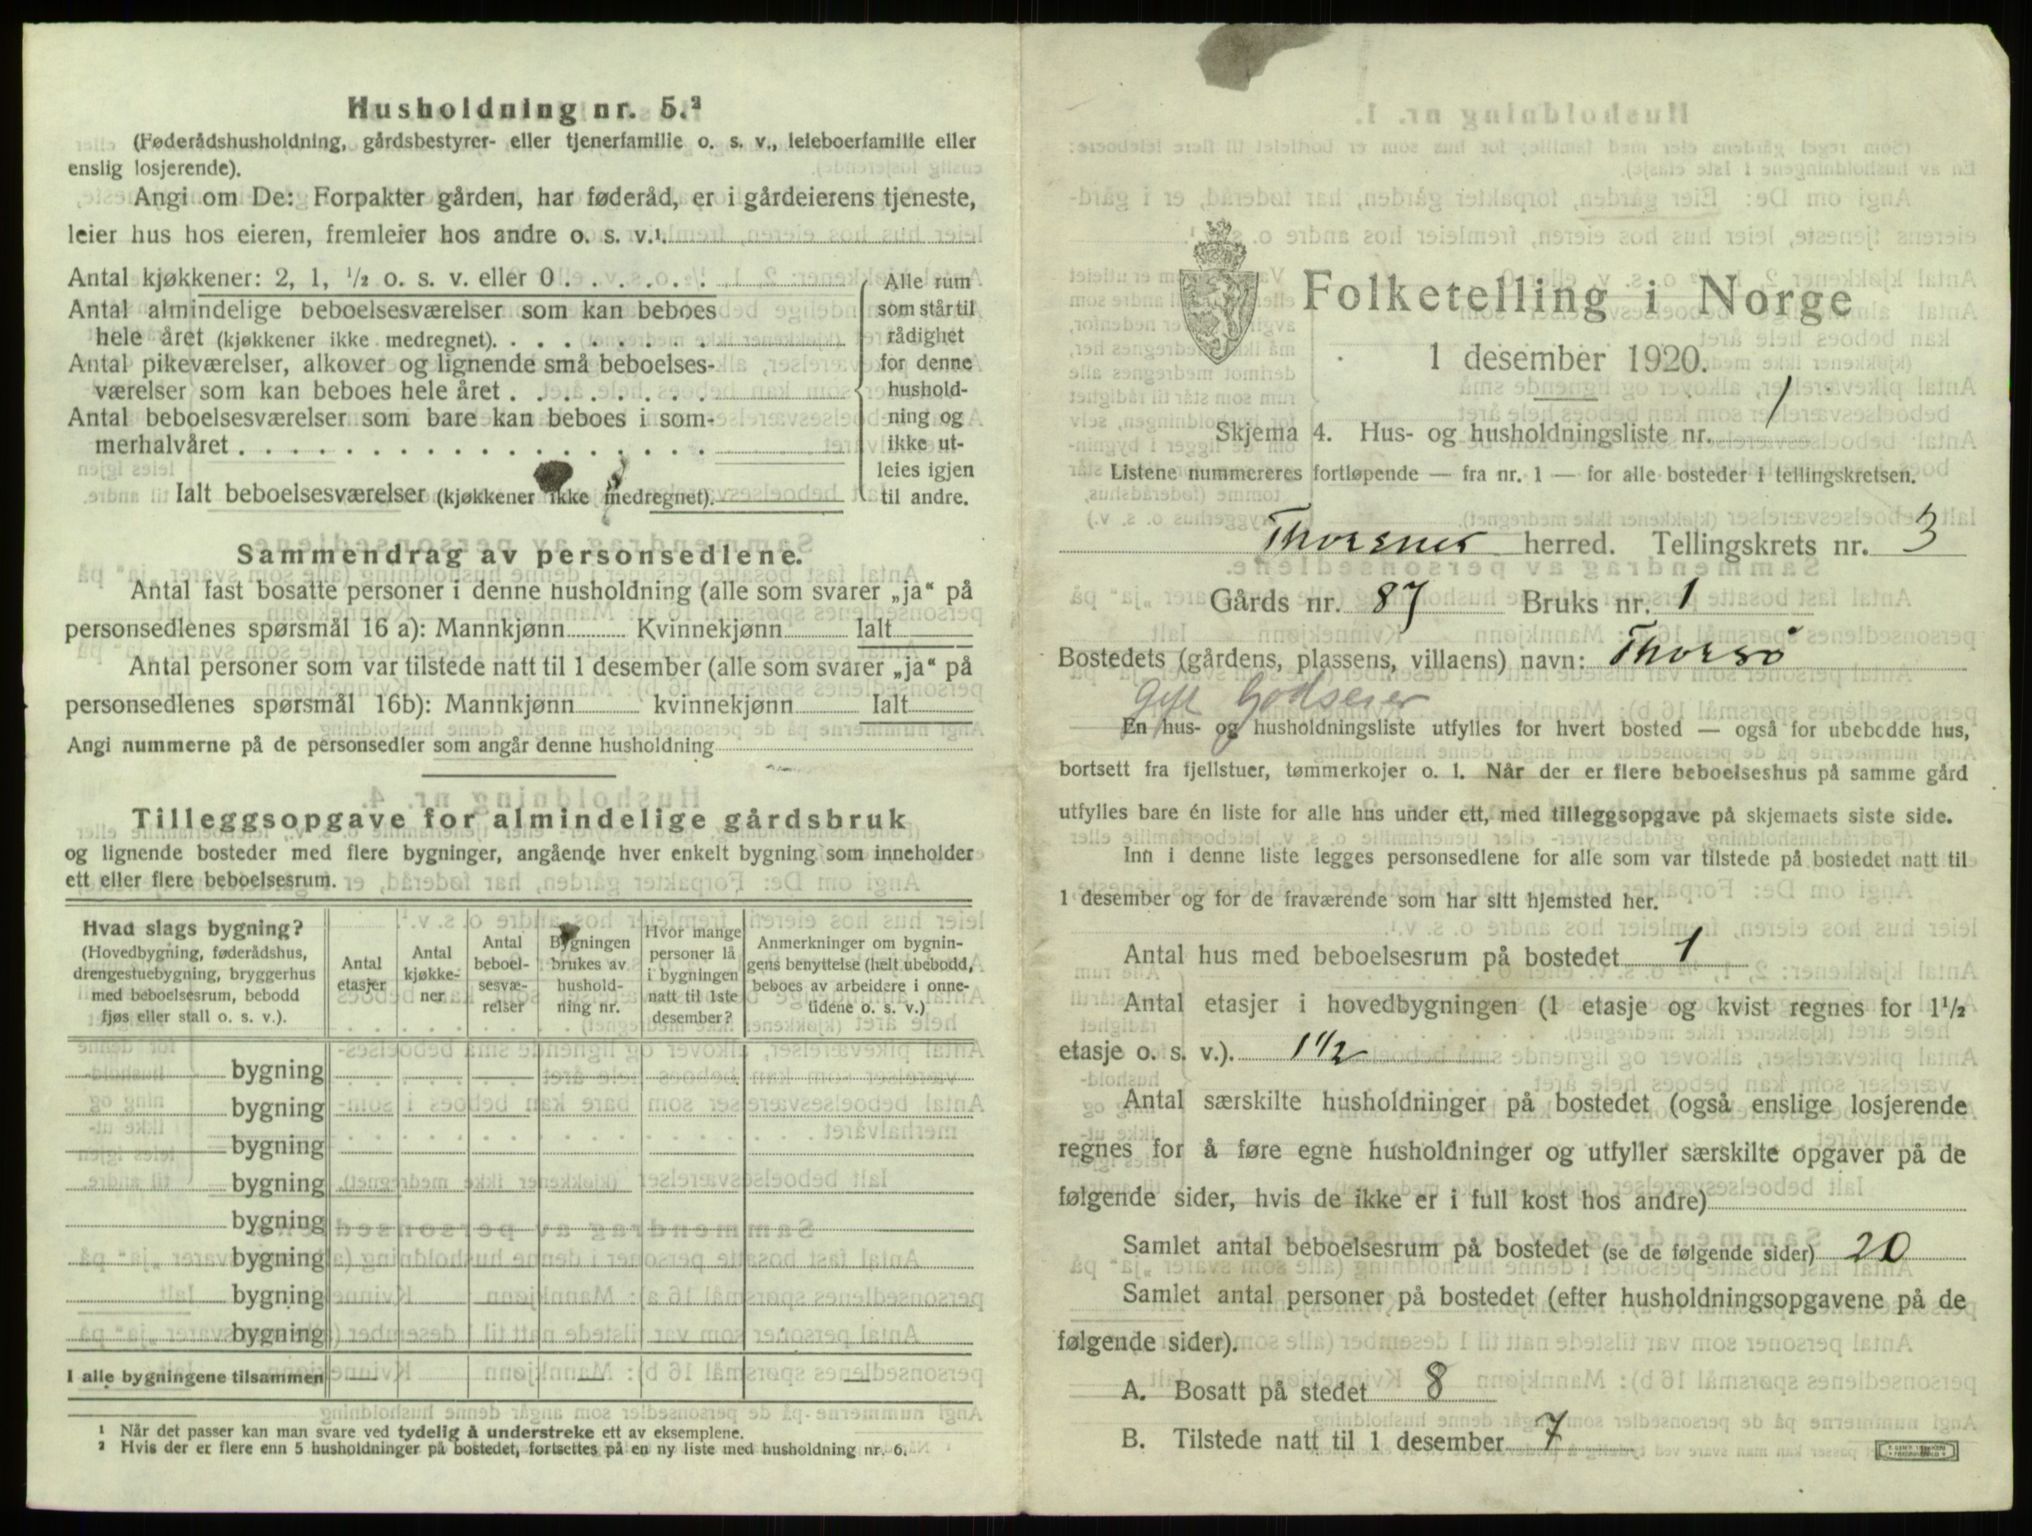 Husholdning nr. 5.²
(Føderådshusholdning, gårdsbestyrer- eller tjenerfamilie o. s. v., leieboerfamilie eller
enslig losjerende).
Angi om De: Forpakter gården, har føderåd, er i gårdeierens tjeneste,
leier hus hos eieren, fremleier hos andre o. s. v.¹
Antal kjøkkener: 2, 1, ½ o. s. v. eller 0 . . . . . .
Antal almindelige beboelsesværelser som kan beboes
hele året (kjøkkener ikke medregnet). . . . . . . .
Antal pikeværelser, alkover og lignende små beboelses-
værelser som kan beboes hele året . . . . . . .
Antal beboelsesværelser som bare kan beboes i som-
merhalvåret . . . . . . . . . . . . . . . .
Ialt beboelsesværelser (kjøkkener ikke medregnet).
Alle rum
som står til
rådighet
for denne
hushold-
ning og
ikke ut-
leies igjen
til andre.
Sammendrag av personsedlene.
Antal fast bosatte personer i denne husholdning (alle som svarer „ja“ på
personsedlenes spørsmål 16 a): Mannkjønn Kvinnekjønn Ialt
Antal personer som var tilstede natt til 1 desember (alle som svarer „ja“ på
personsedlenes spørsmål 16b): Mannkjønn kvinnekjønn Ialt
Angi nummerne på de personsedler som angår denne husholdning
Tilleggsopgave for almindelige gårdsbruk
og lignende bosteder med flere bygninger, angående hver enkelt bygning som inneholder
ett eller flere beboelsesrum.
Hvad slags bygning?
(Hovedbygning, føderådshus,
drengestuebygning, bryggerhus
med beboelsesrum, bebodd
fjøs eller stall o. s. v.).
Antal
etasjer
Antal
kjøkke-
ner
Antal
beboel-
sesvæ-
relser
Bygningen
brukes av
hushold-
ning nr.
Hvor mange
personer lå
i bygningen
natt til 1ste
desember?
Anmerkninger om bygnin-
gens benyttelse (helt ubebodd,
beboes av arbeidere i onne-
tidene o. s. v.)
bygning
bygning
bygning
bygning
bygning
bygning
bygning
bygning
I alle bygningene tilsammen
¹ Når det passer kan man svare ved tydelig å understreke ett av eksemplene.
² Hvis der er flere enn 5 husholdninger på bostedet, fortsettes på en ny liste med husholdning nr. 6.
Folketelling i Norge
1 desember 1920.
Skjema 4. Hus- og husholdningsliste nr. 1
Listene nummereres fortløpende — fra nr. 1 — for alle bosteder i tellingskretsen.
Thorsnes herred. Tellingskrets nr. 3
Gårds nr. 87 Bruks nr. 1
Bostedets (gårdens, plassens, villaens) navn: Thorsø
Godseier
En hus- og husholdningsliste utfylles for hvert bosted — også for ubebodde hus,
bortsett fra fjellstuer, tømmerkojer o. l. Når der er flere beboelseshus på samme gård
utfylles bare én liste for alle hus under ett, med tilleggsopgave på skjemaets siste side.
Inn i denne liste legges personsedlene for alle som var tilstede på bostedet natt til
1 desember og for de fraværende som har sitt hjemsted her.
Antal hus med beboelsesrum på bostedet 1
Antal etasjer i hovedbygningen (1 etasje og kvist regnes for 1½
etasje o. s. v.). 1 1/2
Antal særskilte husholdninger på bostedet (også enslige losjerende
regnes for å føre egne husholdninger og utfyller særskilte opgaver på de
følgende sider, hvis de ikke er i full kost hos andre)
Samlet antal beboelsesrum på bostedet (se de følgende sider) 20
Samlet antal personer på bostedet (efter husholdningsopgavene på de
følgende sider).
A. Bosatt på stedet 8
B. Tilstede natt til 1 desember 7